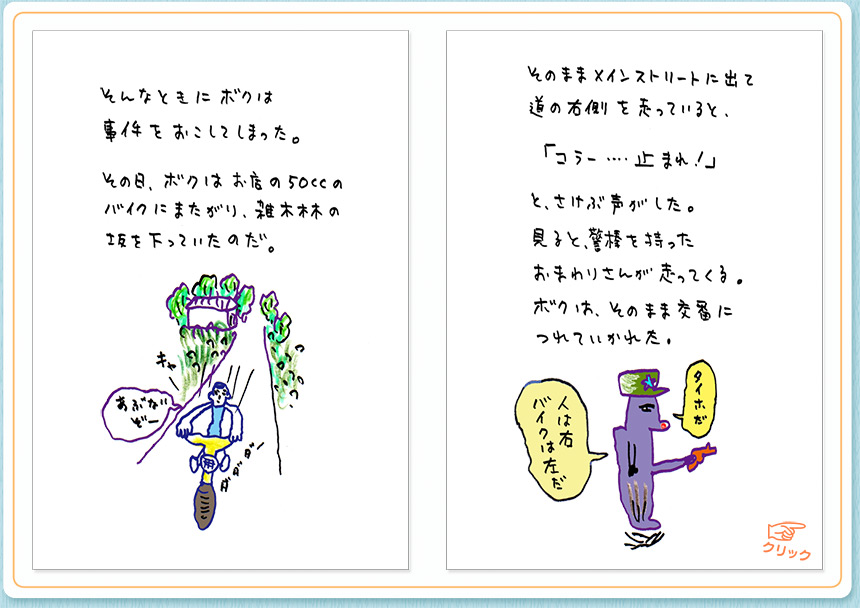 そんなときにボクは
事件をおこしてしまった。
その日、ボクはお店の50ccの
バイクにまたがり、雑木林の
坂を下っていたのだ。
キャ
あぶない
ぞー
ダダダダー
そのままメインストリートに出て
道の右側を走っていると、
「コラー‥‥止まれ!」
と、さけぶ声がした。
見ると、警棒を持った
おまわりさんが走ってくる。
ボクは、そのまま交番に
つれていかれた。
タイホだ
人は右
バイクは左だ
クリック